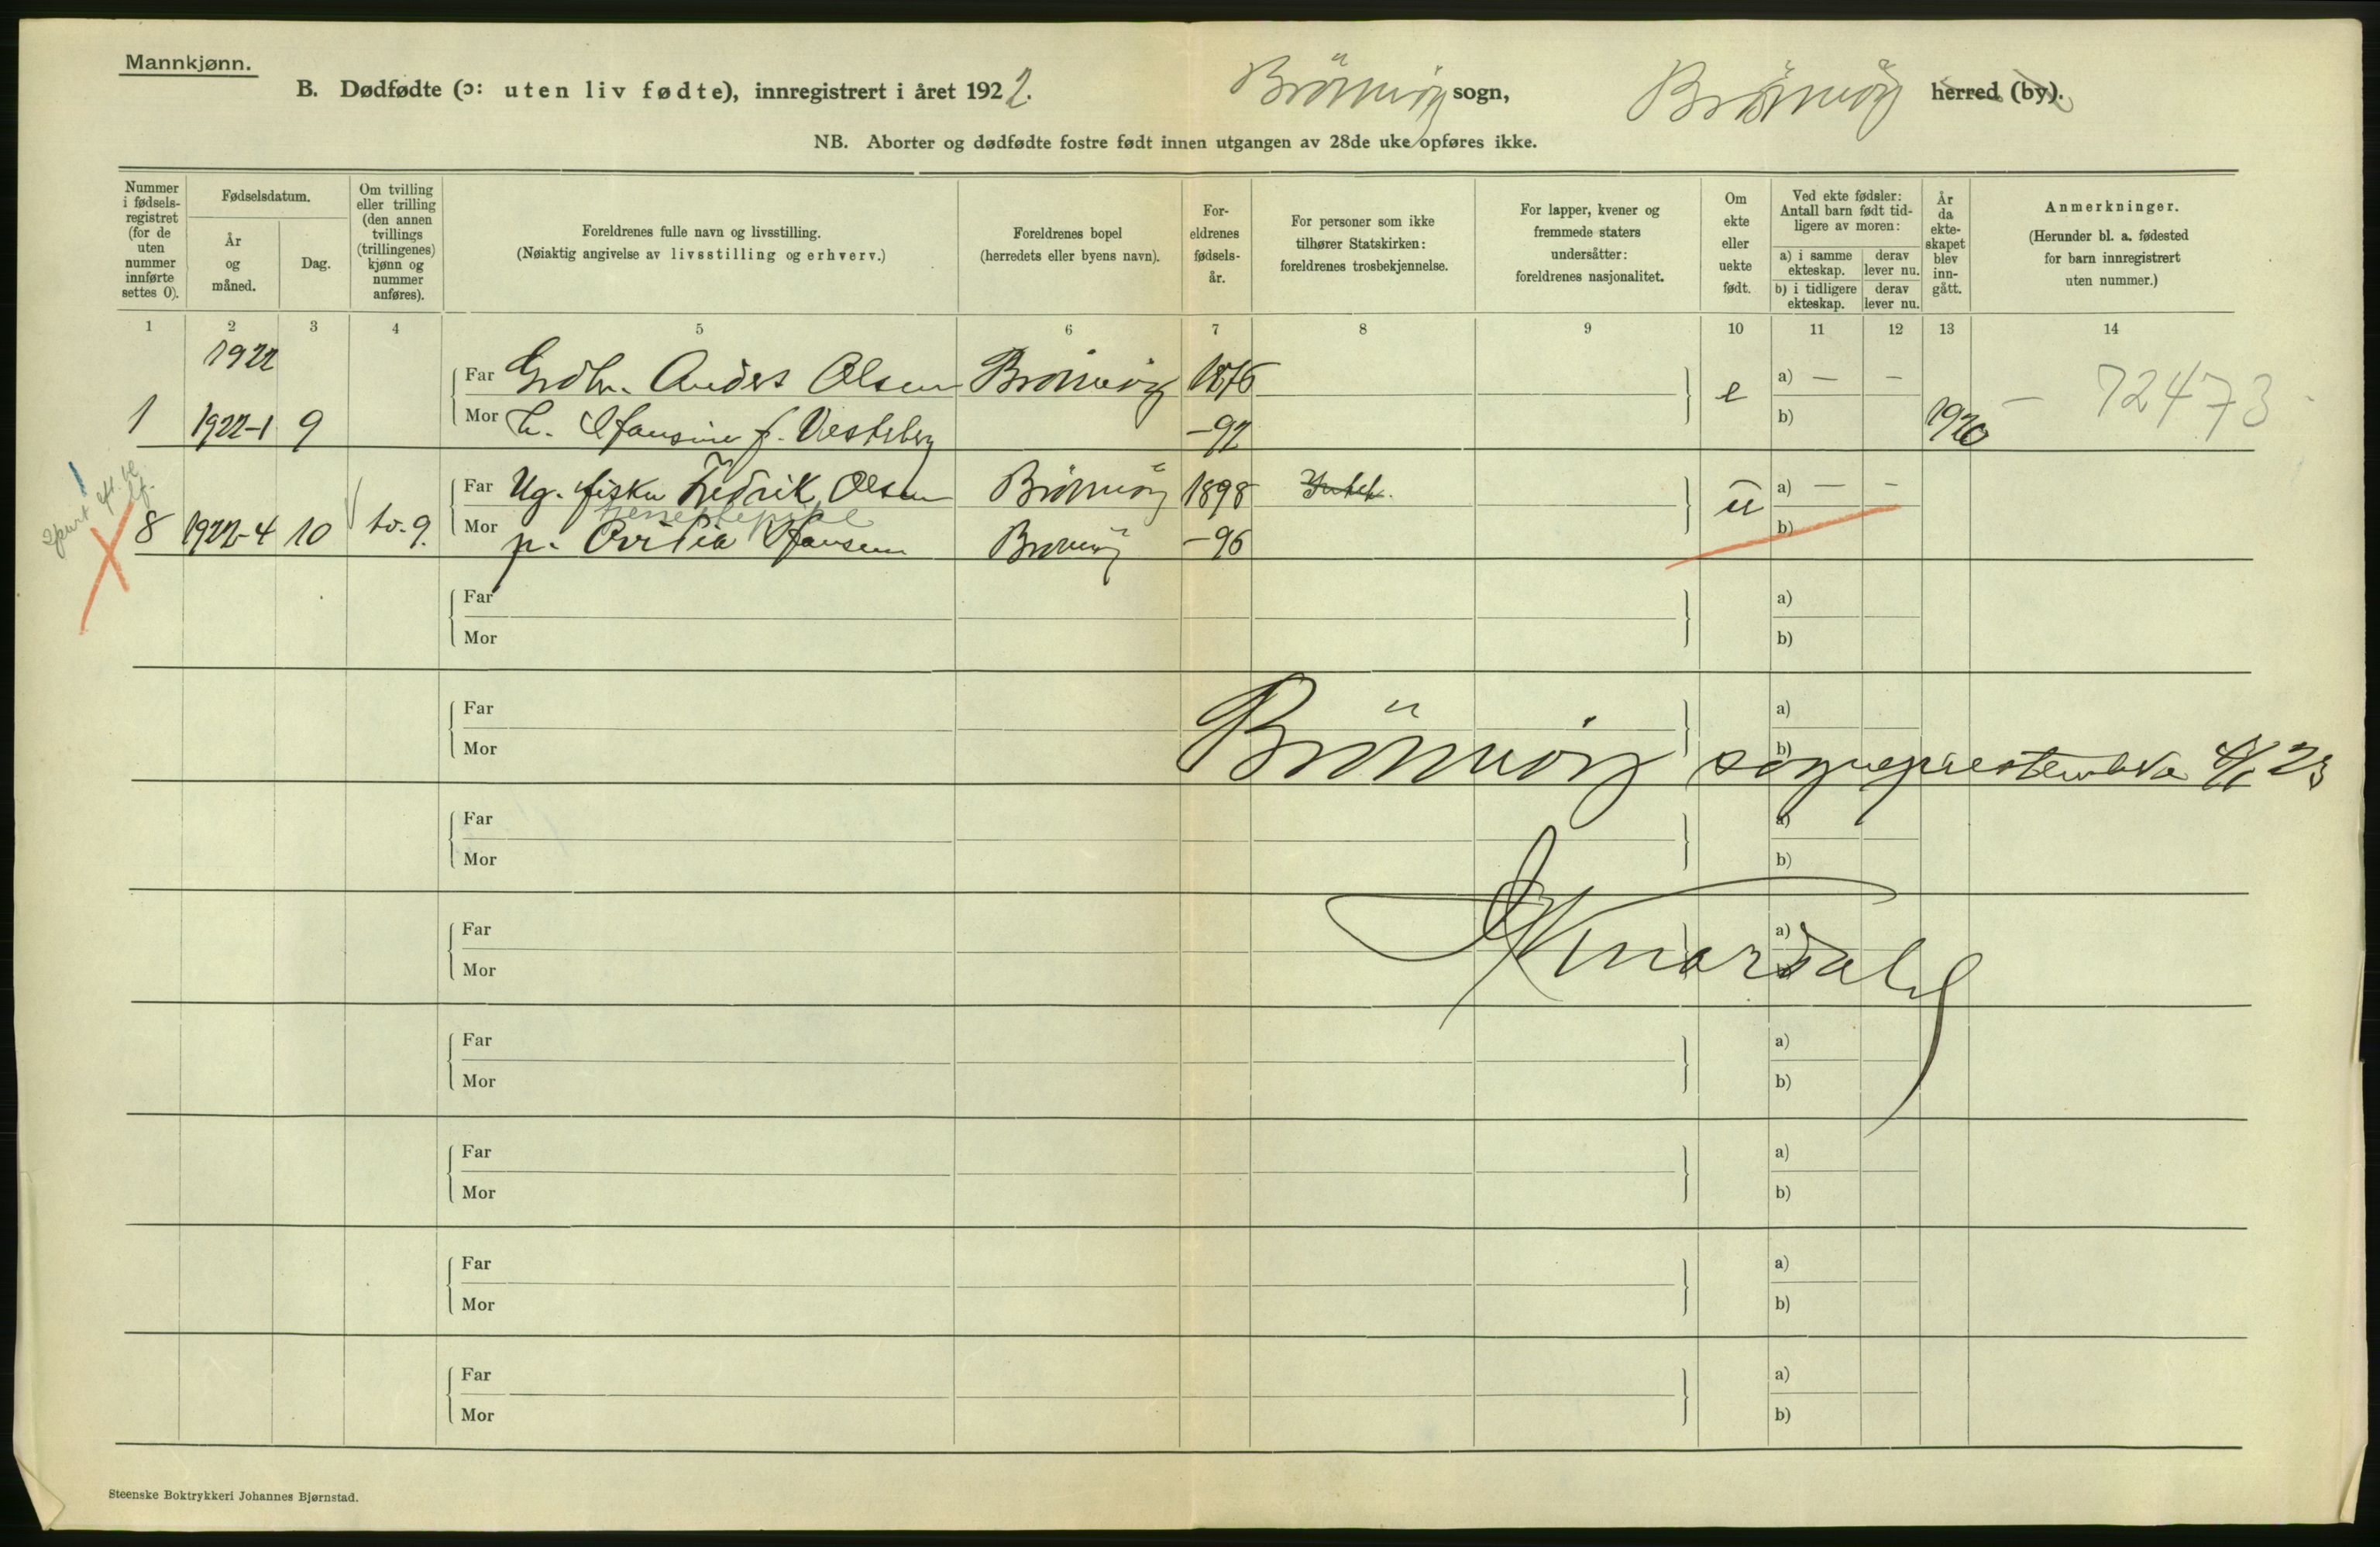 Mannkjønn.
B. Dødfødte (ɔ: uten liv fødte), innregistrert i året 1922. Brönnöy sogn, Brönnöy herred (by).
NB. Aborter og dødfødte fostre født innen utgangen av 28de uke opføres ikke.
Nummer i fødsels-registret (for de uten nummer innførte settes 0).
Fødselsdatum.
År og måned.
Dag.
Om tvilling eller trilling (den annen tvillings (trillingenes) kjønn og nummer anføres).
Foreldrenes fulle navn og livsstilling.
(Nøiaktig angivelse av livsstilling og erhverv.)
Foreldrenes bopel
(herredets eller byens navn).
For-eldrenes fødsels-år.
For personer som ikke tilhører Statskirken: foreldrenes trosbekjennelse.
For lapper, kvener og fremmede staters undersåtter: foreldrenes nasjonalitet.
Om ekte eller uekte født.
Ved ekte fødsler: Antall barn født tid-ligere av moren:
a) i samme ekteskap.
derav lever nu.
b) i tidligere ekteskap.
derav lever nu.
År da ekte-skapet blev inn-gått.
Anmerkninger.
(Herunder bl. a. fødested for barn innregistrert uten nummer.)
1 2 3 4 5 6 7 8 9 10 11 12 13 14
1922
Far Grdbr. Anders Olsen Brönnöy 1876 e a) — —
1 1922-1 9 Mor h. Hansine f. Vesteberg -92 b) 1920 — 72473
Far Ug. fisker Fredrik Olsen Brönnöy 1898 u a) — —
tjenestepike
8 1922-4 10 tv. 9. Mor p. Ovidia Hansen Brönnöy -96 b)
Far a)
Mor b)
Far a)
Mor b)
Brönnöy sogneprestembede 4/1 23
Far a)
Mor b)
Far a)
Mor b)
Far a)
Mor b)
Far a)
Mor b)
Far a)
Mor b)
Far a)
Mor b)
Steenske Boktrykkeri Johannes Bjørnstad.